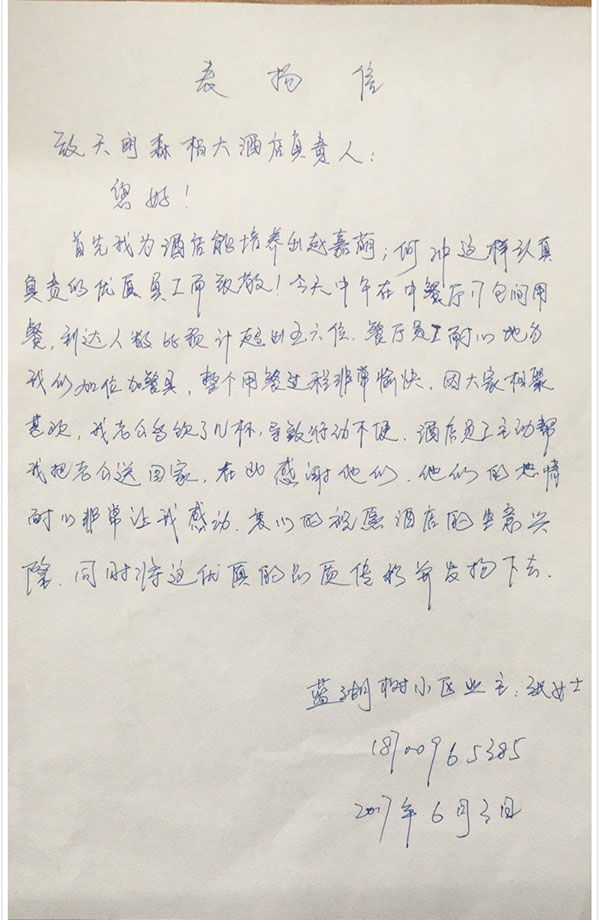 表扬信
致天朗森柏大酒店负责人:
您好!
首先我为酒店能培养出赵嘉萌,何冲这样认真
负责的优质员工而致敬!今天中午在中餐厅17包间用
餐,到达人数比预计超出五六位.餐厅员工耐心地为
我们加位加餐具,整个用餐过程非常愉快,因大家相聚
甚欢,我老公多饮了几杯,导致行动不便.酒店员工主动帮
我把老公送回家,在此感谢他们.他们的热情
耐心非常让我感动.衷心的祝愿酒店的生意兴
隆.同时将这优质的品质传承并发扬下去.
蓝湖树小区业主:张女士
18700965385
2017年6月3日